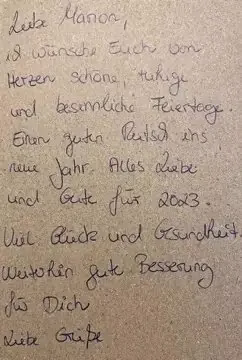 Liebe Marion,
ich wünsche Euch von
Herzen schöne, ruhige
und besinnliche Feiertage.
Einen guten Rutsch ins
neue Jahr. Alles Liebe
und Gute für 2023.
Viel Glück und Gesundheit.
Weiterhin gute Besserung
für Dich
Liebe Grüße